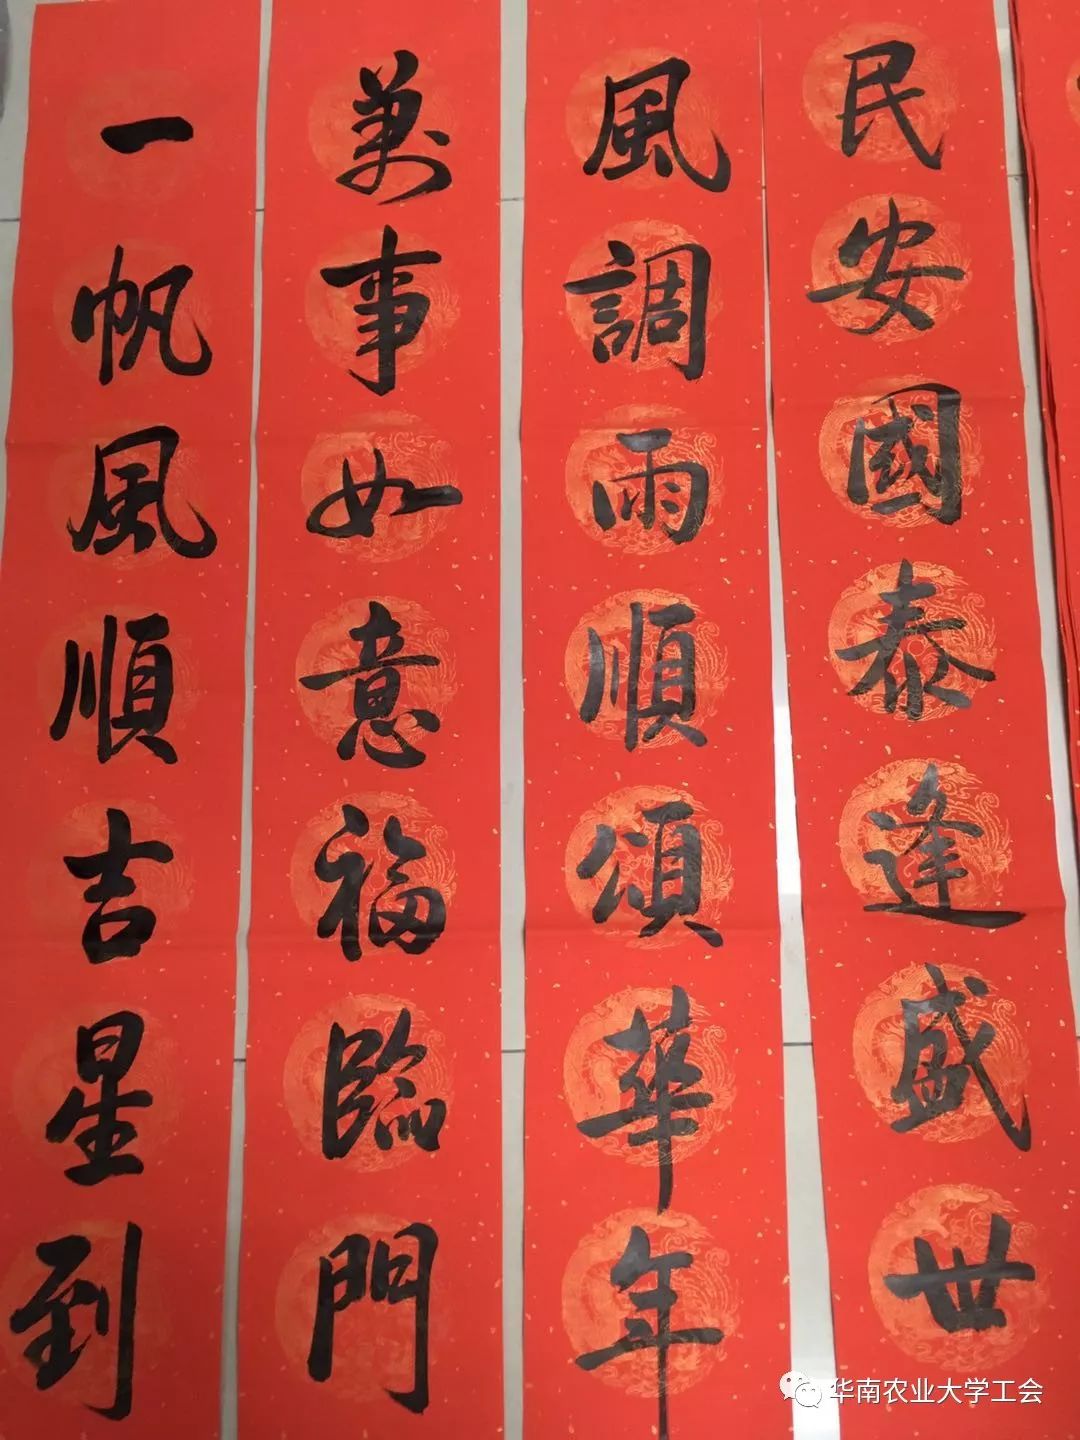 民安國泰逢盛世
風調雨順頌華年
萬事如意福臨門
一帆風順吉星到
华南农业大学工会